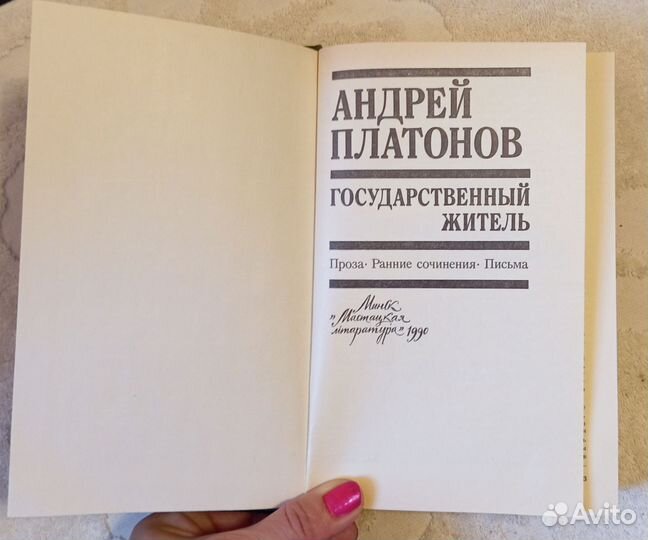 АНДРЕЙ
ПЛАТОНОВ
ГОСУДАРСТВЕННЫЙ
ЖИТЕЛЬ
Проза· Ранние сочинения· Письма
Минск
„Мастацкая
літаратура" 1990
Avito